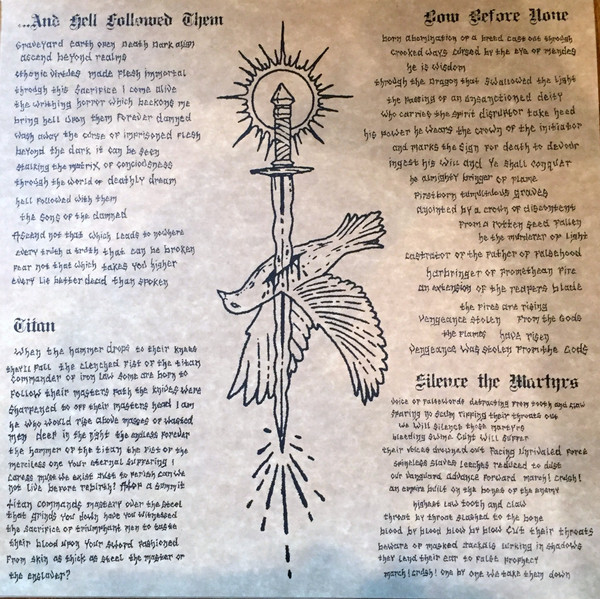 ...And Hell Followed Them
Graveyard earth open Death Dark abyss
ascend beyond realms
Cthonic virtues made flesh immortal
through this sacrifice I come alive
the writhing horror which beckons me
bring hell upon them forever damned
wash away the curse of imprisoned flesh
beyond the dark it can be seen
stalking the matrix of conciousness
through the world of deathly dream
hell followed with them
the song of the damned
Ascend not that which leads to nowhere
every truth a truth that can be broken
fear not that which takes you higher
every lie better dead than spoken
Titan
When the hammer drops to their knees
they'll fall the clenched fist of the titan
commander of iron law some are born to
follow their masters path the knives were
sharpened to off their masters head I am
he who would rise above masses of wasted
men deep in the night the endless forever
the hammer of the titan the fist of the
merciless one your eternal suffering I
caress must we exist just to perish can we
not live before rebirth? Atop a summit
titan commands mastery over the steel
that grinds you down have you witnessed
the sacrifice of triumphant men to taste
their blood upon your sword fashioned
from skin as thick as steel the master or
the enslaver?
Bow Before None
born abomination of a breed cast out through
crooked ways cursed by the eye of mendes
he is wisdom
through the dragon that swallowed the light
the passing of an unsanctioned deity
who carries the spirit disruptor take heed
his power he wears the crown of the initiator
and marks the sign for death to devour
ingest his will and ye shall conquer
he almighty bringer of flame
firstborn tumultuous graves
anointed by a crown of discontent
from a rotten seed fallen
he the murderer of light
castrator of the father of falsehood
harbringer of promethean fire
an extension of the reapers blade
the fires are rising
vengeance stolen from the gods
the flames have risen
vengeance was stolen from the gods
Silence the Martyrs
voice of falsewords detracting from tooth and claw
fearing no scum ripping their throats out
we will silence those martyrs
bleeding swine cunt will suffer
their voices drowned out facing unrivaled force
spineless slaves leeches reduced to dust
our vanguard advance forward march! crush!
an empire built on the bones of the enemy
highest law tooth and claw
throat by throat slashed to the bone
blood by blood blow by blow cut their throats
beware of masked jackals lurking in shadows
they lend their ear to false prophecy
march! crush! one by one we take them down